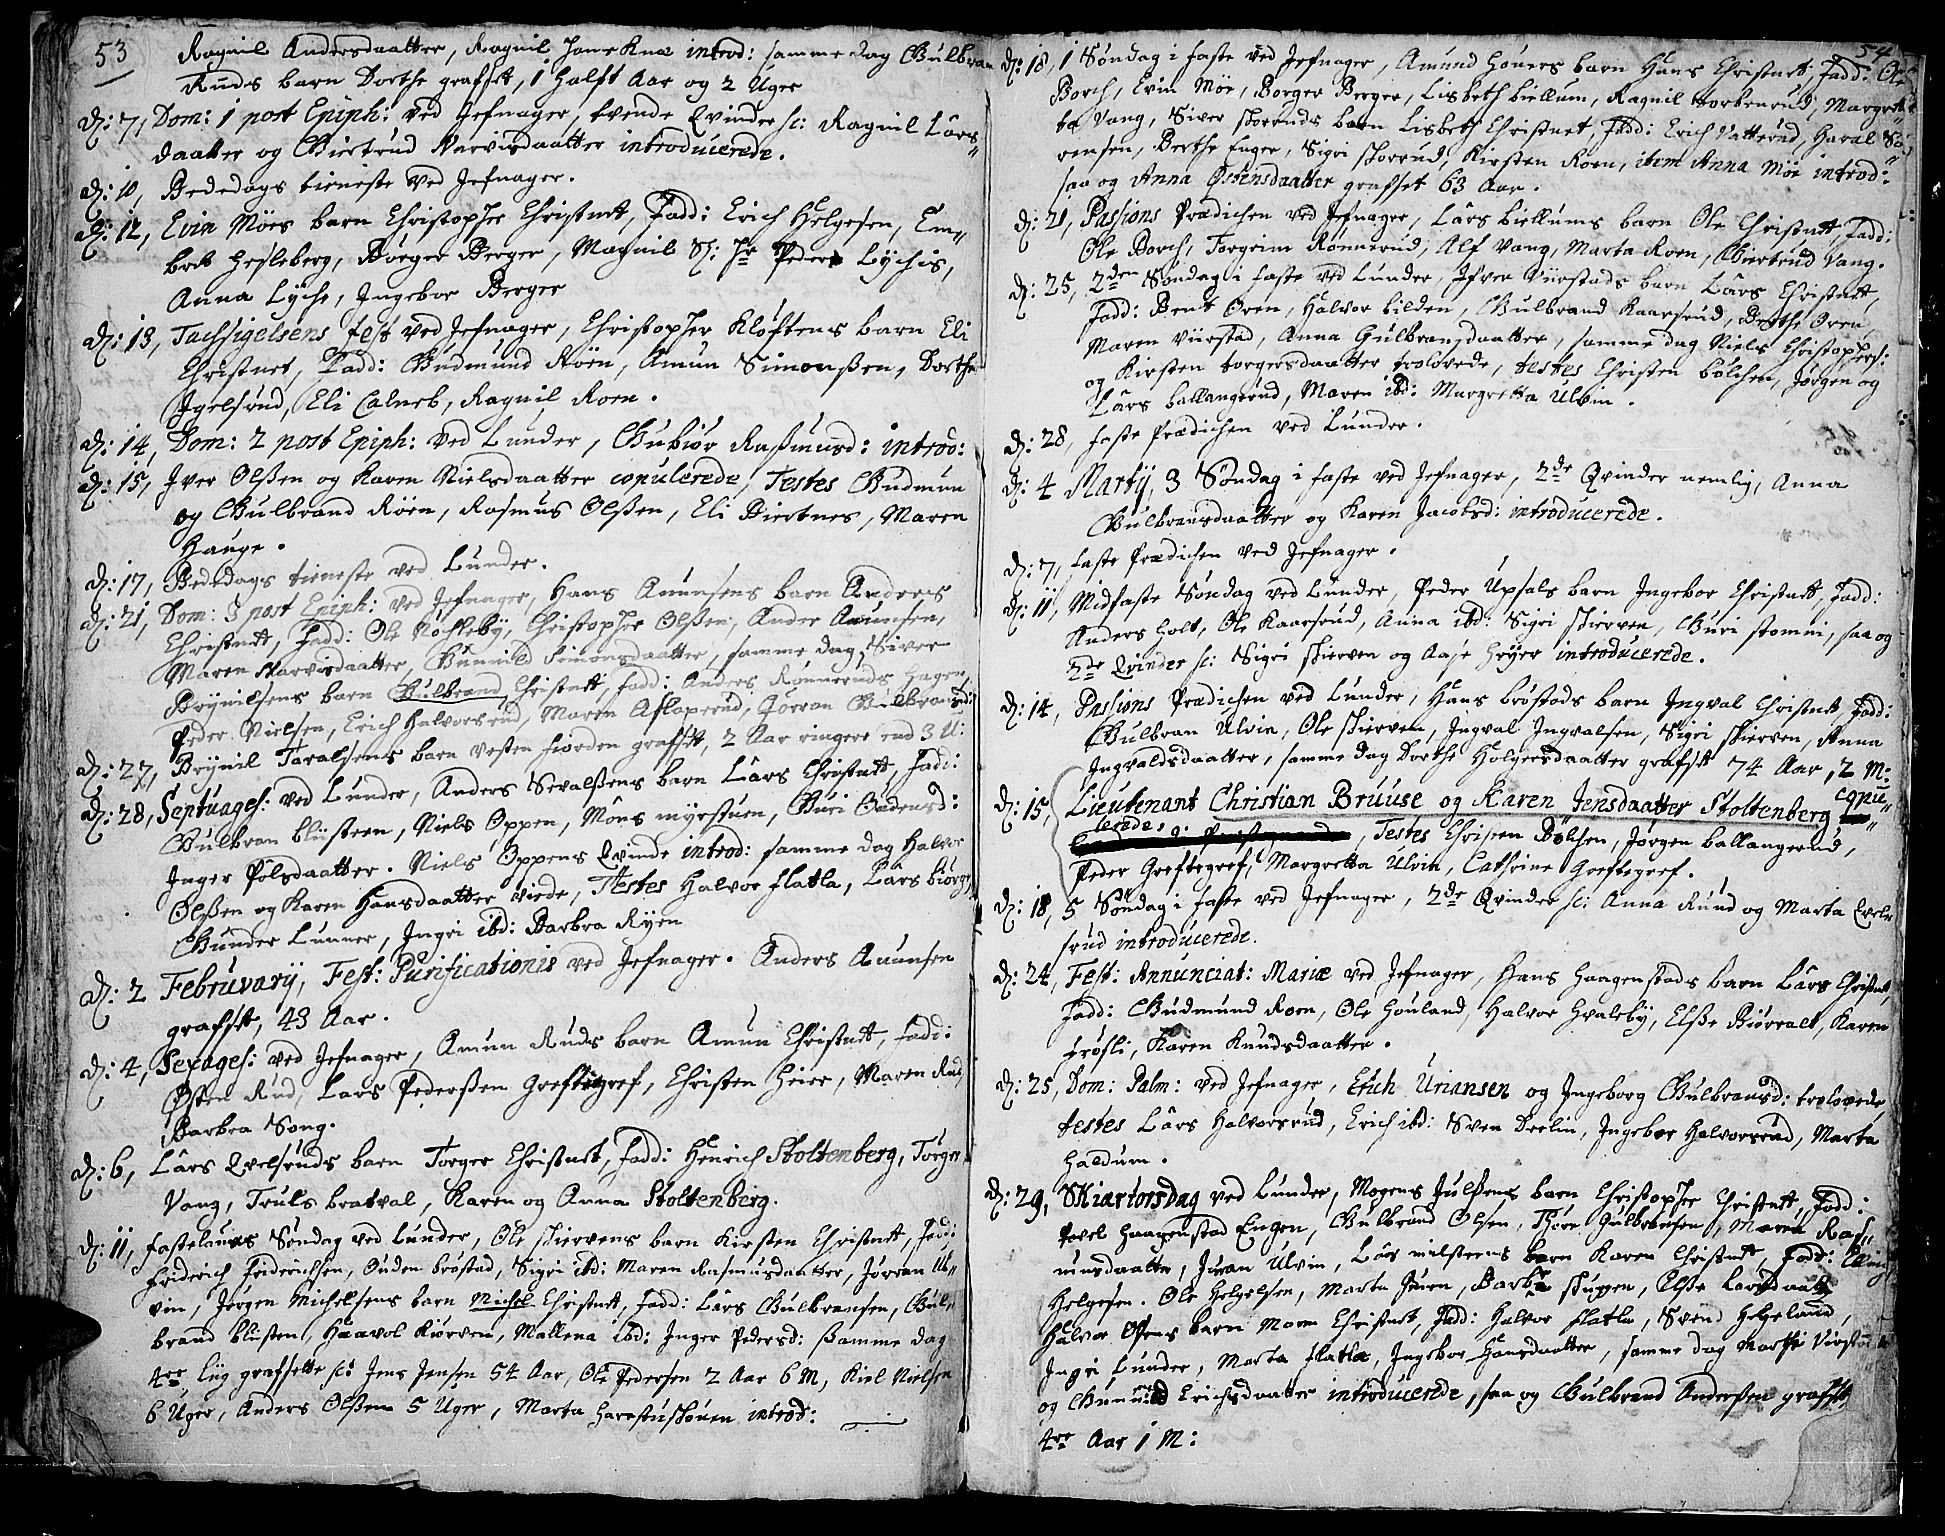 53
Ragnil Andersdaatter, Ragnil introd: samme dag Gulbran
Ruds barn Dorthe grafset, 1 halft Aar og 2 Uger
D: 7, Dom: 1 post Epiph: ved Jefnager, tvende Qvinder sc: Ragnil Lârs„
daatter og Giertrud Narvesdaatter introducerede.
D: 10, Bededags tieneste ved Jefnager.
D: 12, Evin Möes barn Christopher Christnet, Fadd: Erich Helgesen, Em„
bret Hesleberg, Börger Berger, Magnil Sl: Hr Peder Lychis,
Anna Lyche, Ingebor Berger
D: 13, Tachsigelsens fest ved Jefnager, Christopher Kløftens barn Eli
Christnet, Fadd: Gudmund Röen, Amun Simonßen, Dorthe
Igelsrud, Eli Calneb, Ragnil Roen.
D: 14, Dom: 2 post Epiph: ved Lunder, Gubiør Raßmusd: introd:
D: 15, Iver Olßen og Karen Nielsdaatter copulerede, Testes Gudmun
og Gulbrand Röen, Rasmus Olßen, Eli Biertnes, Maren
Hauge.
D: 17, Bededags tieneste ved Lunder.
D: 21, Dom: 3 post Epiph: ved Jefnager, Hans Amunsens barn Anders
Christnet, Fadd: Ole Christopher Olßen, Ander Amunsen,
Maren Narvesdaatter, Gunnild Simonsdaatter, samme dag Siver
Brynilsens barn Gulbrand Christnet, Fadd: Anders Rønneruds
Peder Nielsen, Erich Halvorsrud, Maren Aslaperud, Gulbransd:
D: 27, Brynil Taralsens barn vesten fiorden grafset, 2 Aar ringere end 3 U:
D: 28, Septuages: ved Lunder, Anders Sevalßens barn Lârs Christnet, Fadd:
Gulbran blysteen, Niels Oppen, Môns myrstuen, Guri
Inger Pôlsdaatter. Niels Oppens Qvinde introd: samme dag Halvor
Olßen og Karen Hansdaatter viede, Testes Halvor flatla, Lârs
Gunder Lunner, Ingri ibd: Barbra Ryen
D: 2 Februvarÿ, Fest: Purificationis ved Jefnager. Anders Amunsen
grafset, 43 Aar.
D: 4, Sexages: ved Jefnager, Amun Ruds barn Amun Christnet, Fadd:
Østen Rud, Lars Pederßen Greftegref, Christen Heier, Maren Rud,
Barbra Song.
D: 6, Lârs Qvelsruds barn Torger Christnet, Fadd: Henrich Stoltenberg, Torger
Vang, Truls bratval, Karen og Anna Stoltenberg.
D: 11, fastelauns Söndag ved Lunder, Ole skiervens barn Kirsten Christnet, Fadd:
Friderich Friderichsen, Ouden bröstad, Sigri ibd: Maren Rasmusdaatter, Jörran Ul„
vin, Jörgen Michelsens barn Michel Christnet, Fadd: Lârs Gulbransen, Gul„
brand blisten, Haavol Kiörven, Mallena ibd: Inger Pedersd: samme dag
4re liig grafsette sc: Jens Jensen 54 Aar, Ole Pedersen 2 Aar 6 M, Kiel Nielsen
6 Uger, Anders Olßen 5 Uger, Marta introd:
54
D: 18, 1 Söndag i faste ved Jefnager, Amund Houers barn Hans Christnet, Fadd: Ole
Borch, Evin Möe, Borger Berger, Lisbeth biellum, Ragnil torbenrud, Margret„
ta Vang, Siver skoruds barn Lisbeth Christnet, Fadd: Erich Vatterud, Haral Sö„
rensen, Berthe Enger, Sigri skorrud, Kirsten Roen, item Anna Möe introd:
saa og Anna Østensdaatter grafset 63 Aar.
D: 21, Passions Prædichen ved Jefnager, Lârs biellums barn Ole Christnet, Fadd:
Ole Borch, Torgrim Rönnerud, Alf Vang, Marta Roen, Giertrud Vang.
D: 25, 2den Söndag i faste ved Lunder, Ifver Viirstads barn Lârs Christnet,
Fadd: Bent Oren, Halvor bilden, Gulbrand Kaarsrud, Berthe Oren,
Maren viirstad, Anna Gulbransdaatter, samme dag Niels Christophers:
og Kirsten torgersdaatter trolovede, testes Christen bölchen, Jørgen og
Lârs ballangerud, Maren ibd: Margretta Ulvin.
D: 28, faste Prædichen ved Lunder.
D: 4 Martÿ, 3 Söndag i faste ved Jefnager, 2de Qvinder nemlig, Anna
Gulbransdaatter og Karen Jacobsd: introducerede.
D: 7, faste Prædichen ved Jefnager.
D: 11, Midfaste Söndag ved Lunder, Peder Upsals barn Ingebor Christnet, Fadd:
Anders Holt, Ole Kaarsrud, Anna ibd: Sigri skierven, Guri stomni, saa og
2de Qvinder sc: Sigri skierven og Aase Hryer introducerede.
D: 14, Passions Prædichen ved Lunder, Hans bröstads barn Ingval Christnet, Fadd:
Gulbran Ulvin, Ole skierven, Ingval Ingvalsen, Sigri skierven, Anna
Ingvaldsdaatter, samme dag Dorthe Holgersdaatter grafset 74 Aar, 2 M:
D: 15, Lieutenant Christian Bruuse og Karen Jensdaatter Stoltenberg copu„
lerede, Testes Christen Bölchen, Jörgen ballangerud,
Peder Greftegref, Margretta Ulvin, Cathrine Greftegref.
D: 18, 5 Söndag i faste ved Jefnager, 2de Qvinder sc: Anna Rund og Marta Qvel„
srud introducerede.
D: 24, Fest: Annunciat: Mariæ ved Jefnager, Hans Haagenstads barn Lârs Christnet,
Fadd: Gudmund Roen, Ole Houland, Halvor Hvaleby, Elße Biörralt, Karen
frösli, Karen Knudsdaatter.
D: 25, Dom: Palm: ved Jefnager, Erich Uriansen og Ingeborg Gulbransd: trolovede,
testes Lârs Halvorsrud, Erich ibd: Sven Deelin, Ingebor Halvorsrud, Marta
Haldum.
D: 29, Skiærtorsdag ved Lunder, Mogens Julßens barn Christopher Christnet, Fadd:
Povel Haagenstad Engen, Gulbrand Olsen, Thöre Gulbransen, Maren Ras„
musdaatter, Joran Ulvin, Lârs milsteens barn Karen Christnet, Fadd: Elling
Helgesen. Ole Helgesen, Marta Juren, Barbra skugen, Elße Larsdaatter
Halvor Ofsens barn Maren Christnet, Fadd: Halvor flatla, Svend Helgeland,
Ingri Lunder, Marta flatla, Ingebor Hansdaatter, samme dag Marthe Viirstad
og Gunnild Erichsdaatter introducerede, saa og Gulbrand Anderßen grafset
4re Aar 1 M: